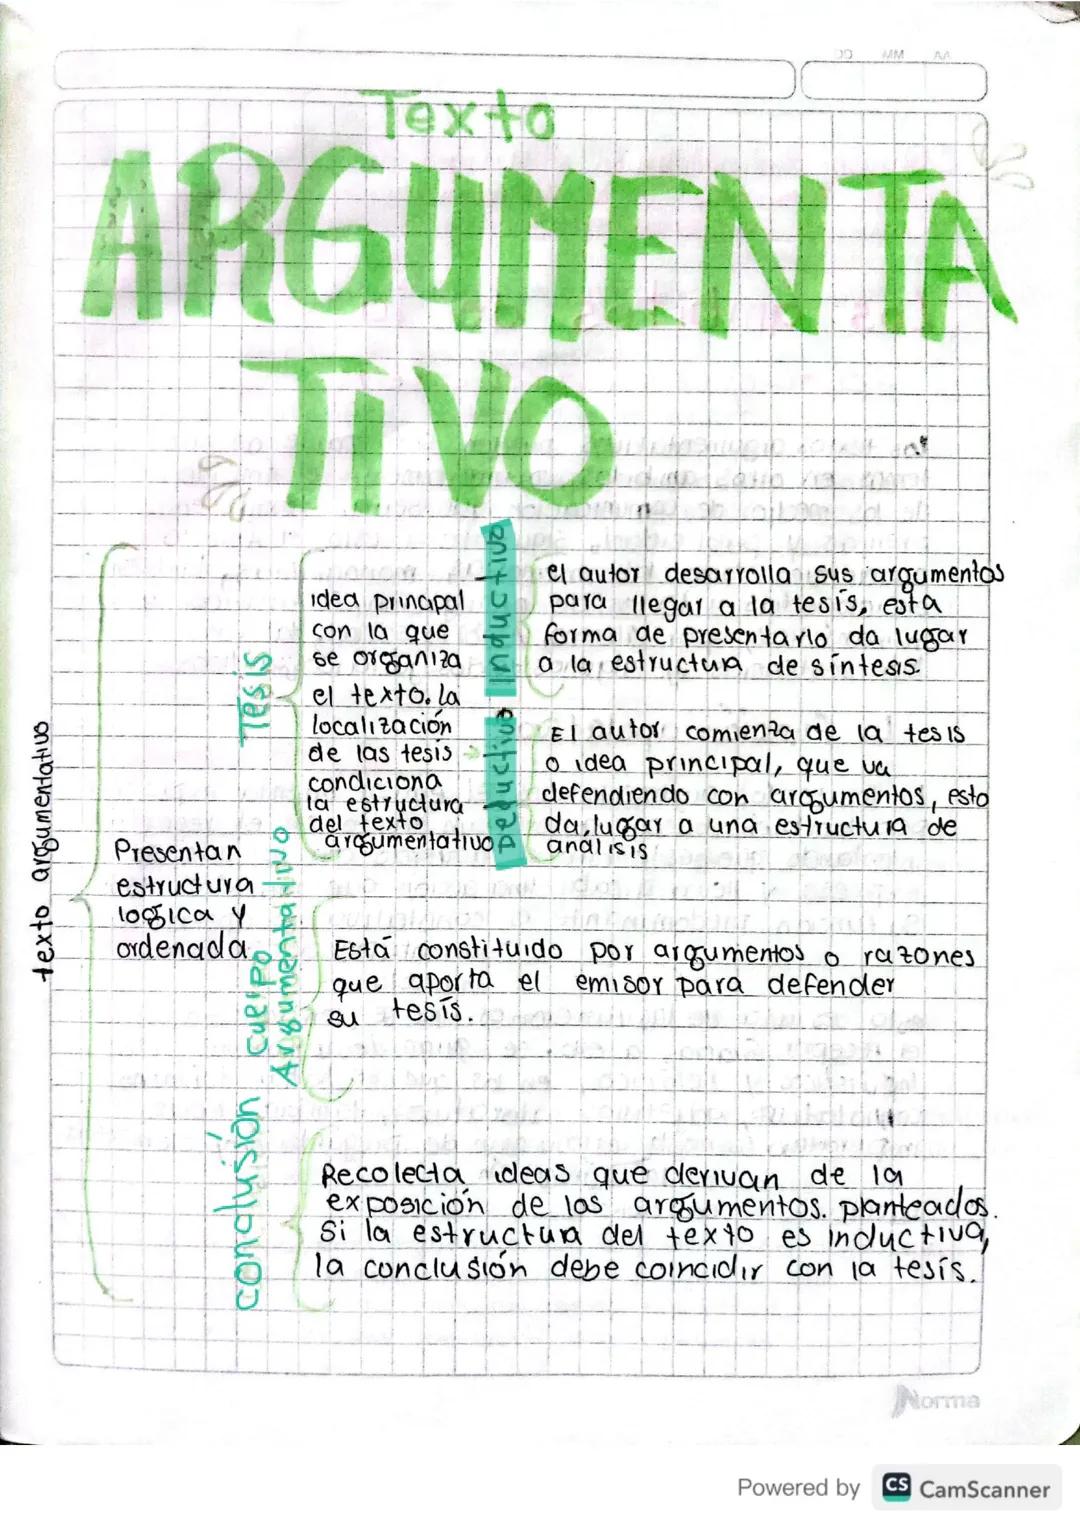 DD MM AA
Texto
ARGUMENTA
TIVO
texto argumentativo
Presentan
estructura
logica y
ordenada
Tesis
idea principal
con la que
se organiza
el texto. la
localización
de las tesis
condiciona
la estructura
del texto
argumentativo
Inductivo
el autor desarrolla sus argumentos
para llegar a la tesis, esta
forma de presentarlo da lugar
a la estructura de síntesis.
Deductivo
El autor comienza de la tesis
o idea principal, que va
defendiendo con argumentos, esto
da lugar a una estructura de
analisis
Cuerpo
Argumentativo
Está constituido por argumentos o razones
que aporta el emisor para defender
su tesís.
conclusión
Recolecta ideas que derivan de la
exposición de los argumentos. planteados.
Si la estructura del texto es inductiva,
la conclusión debe coincidir con la tesís.
Norma
Powered by CS CamScanner